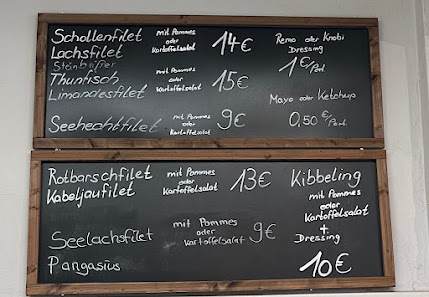 Schollenfilet mit Pommes
Lachsfilet oder Kartoffelsalat 14€
Steinbeißer
Thunfisch mit Pommes oder
Limandesfilet Kartoffelsalat 15€
Seehechtfilet mit Pommes oder Kartoffelsalat 9€
Remo oder Knobi
Dressing
1€/Port.
Mayo oder Ketchup
0,50€/Port.
Rotbarschfilet mit Pommes oder
Kabeljaufilet Kartoffelsalat 13€
Seelachsfilet mit Pommes oder Kartoffelsalat 9€
Pangasius
Kibbeling
mit Pommes
oder
Kartoffelsalat
+
Dressing
10€